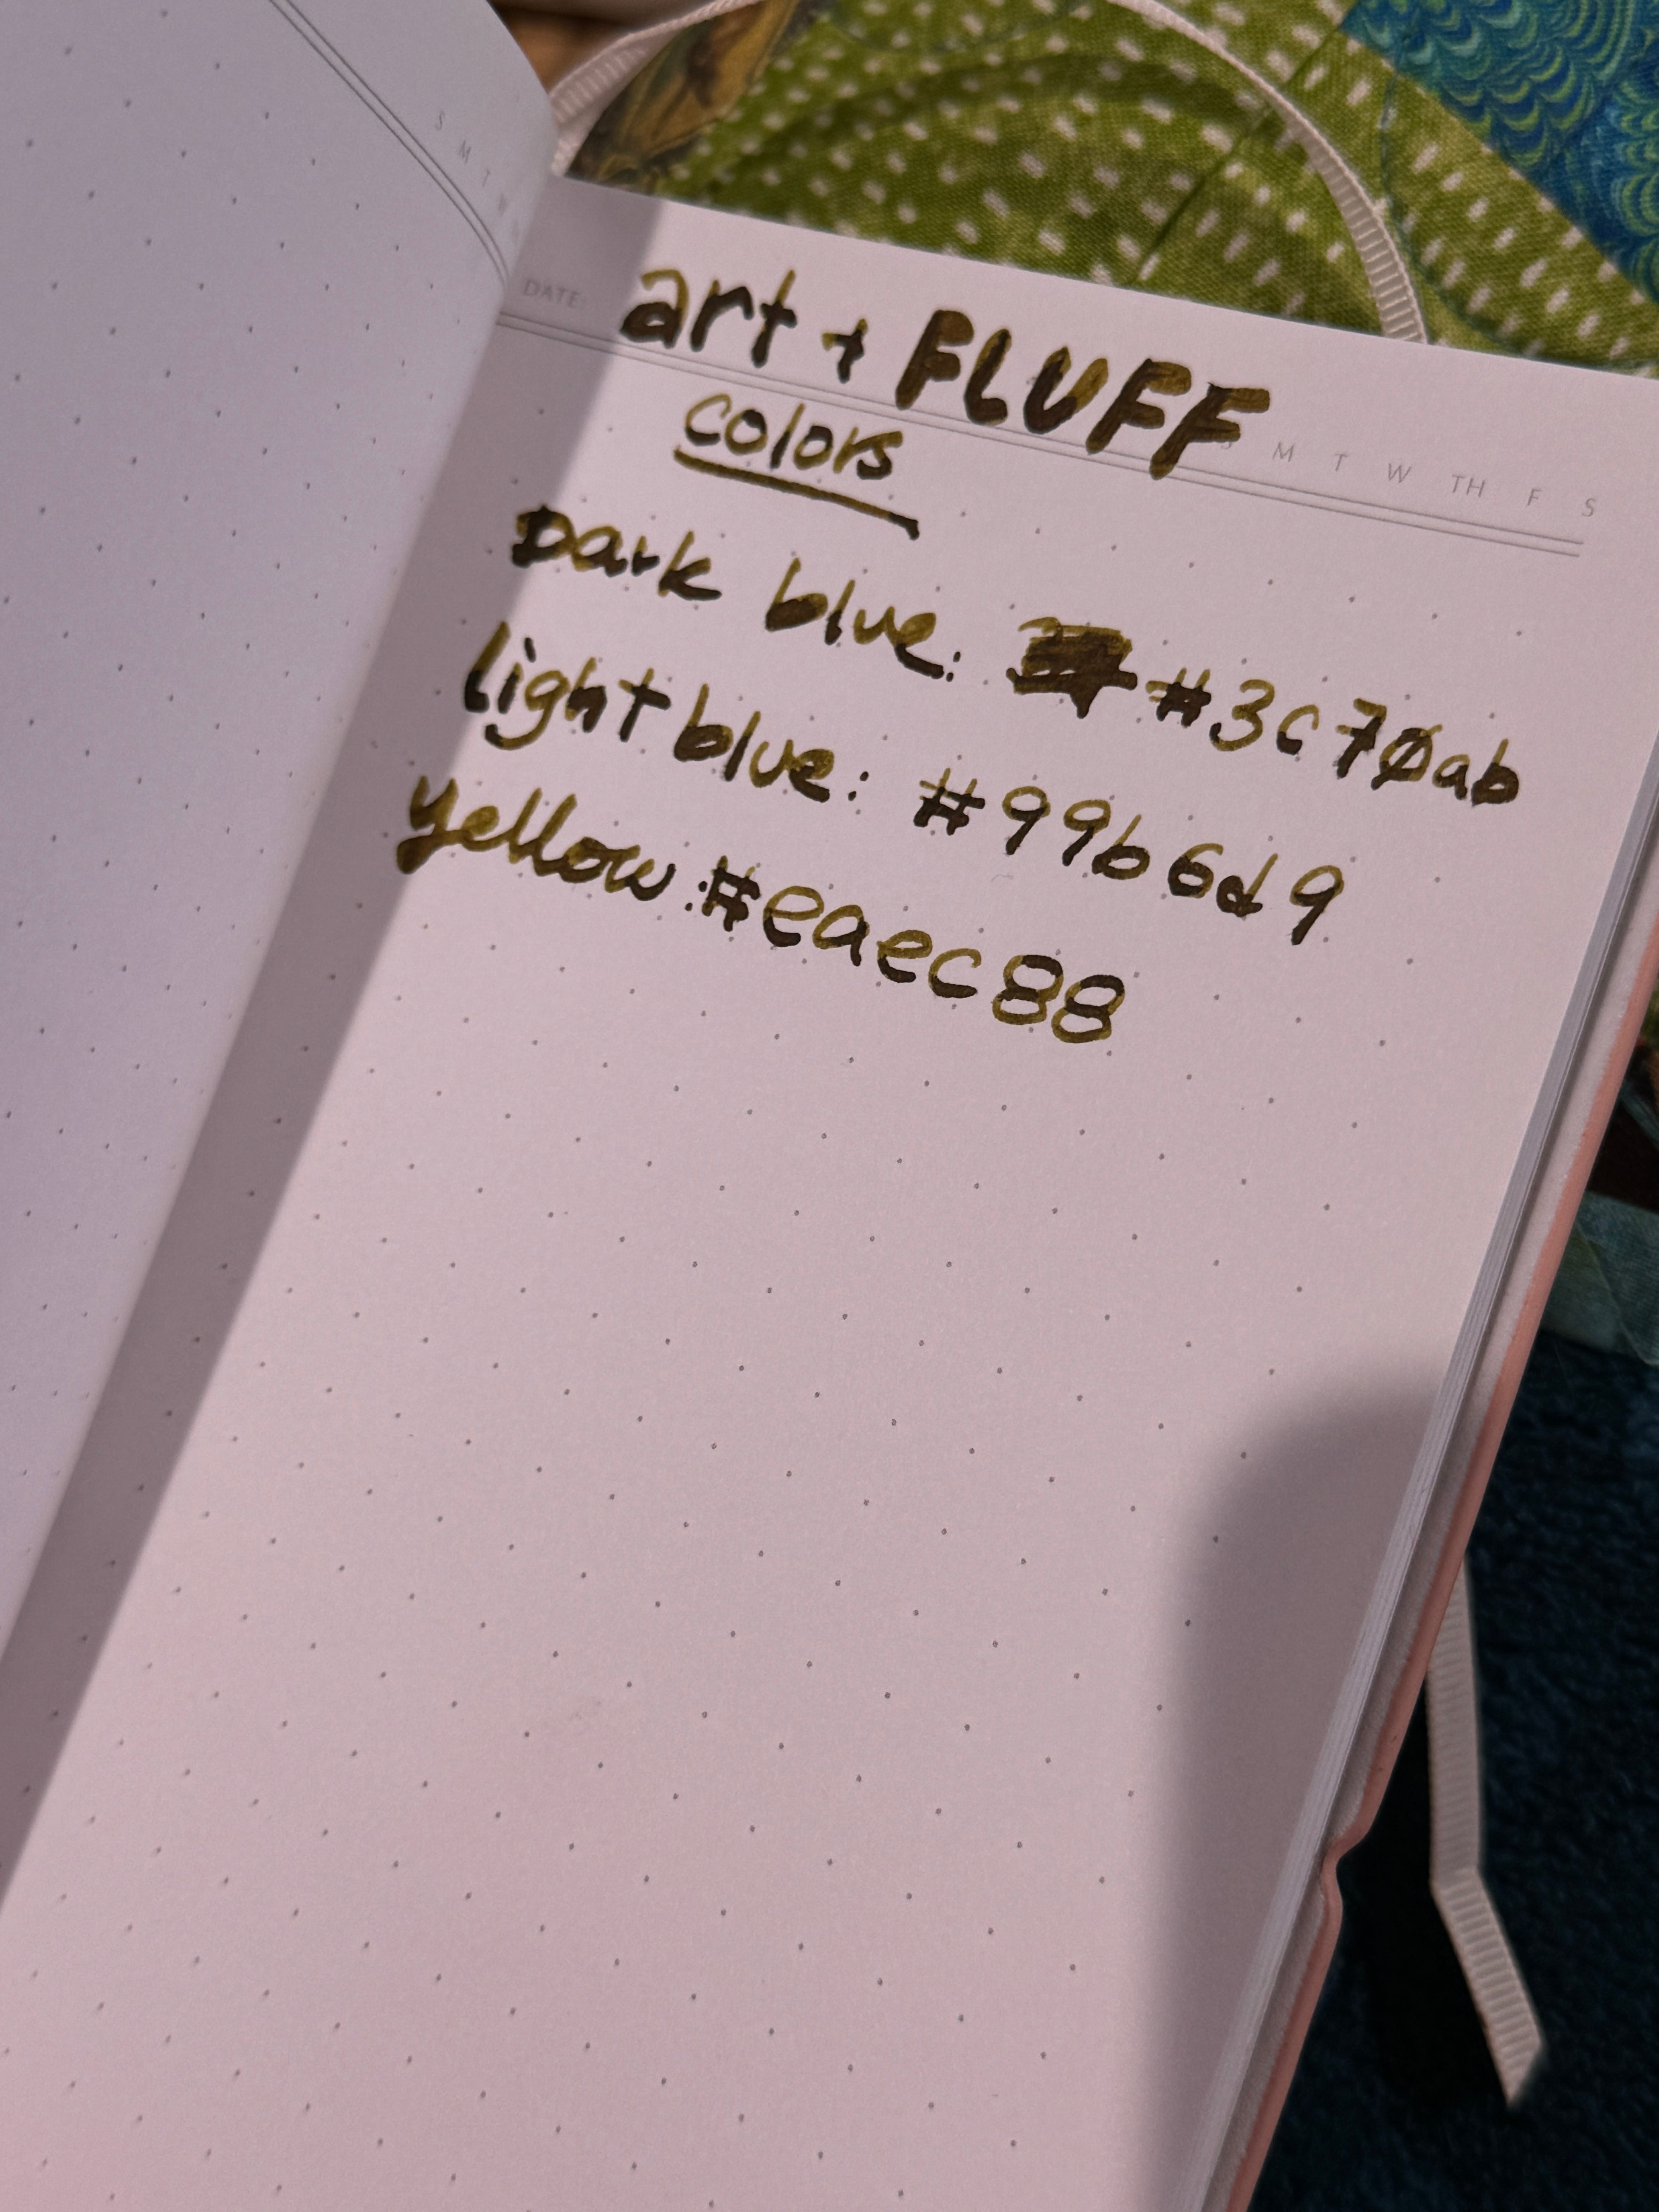 S M T W
DATE:
art + FLUFF
S M T W TH F S
colors
Dark blue: #3c70ab
light blue: #99b6d9
yellow: #eaec88